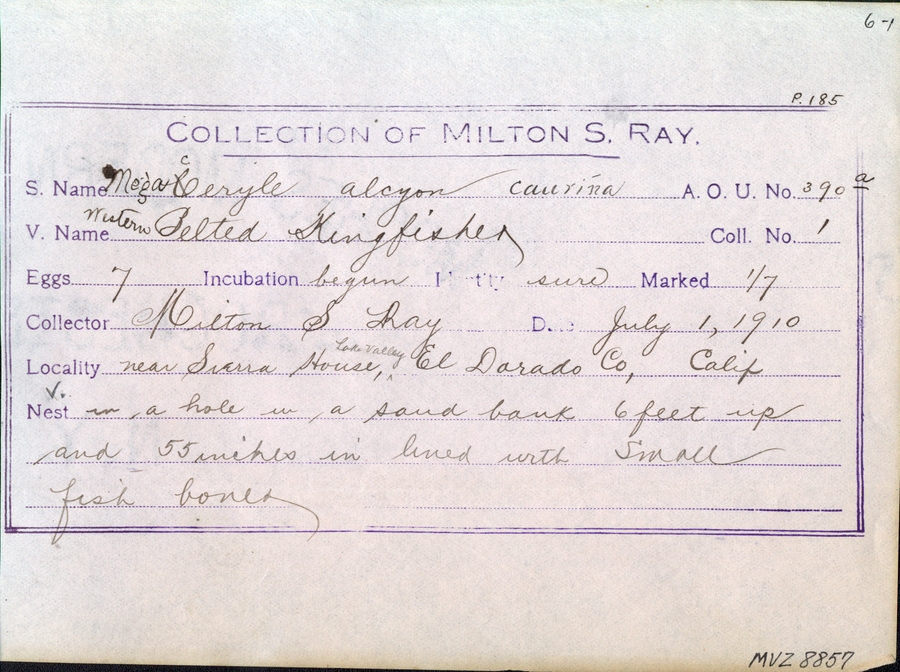 6-1
P. 185
COLLECTION OF MILTON S. RAY.
S. Name Megaceryle alcyon caurina A. O. U. No. 390 a
V. Name Western Belted Kingfisher Coll. No. 1
Eggs 7 Incubation begun Identity sure Marked 1/7
Collector Milton S Ray Date July 1, 1910
Locality near Sierra House, Lake Valley El Dorado Co, Calif
V.
Nest in a hole in a sand bank 6 feet up
and 55 inches in lined with small
fish bones
MVZ 8857